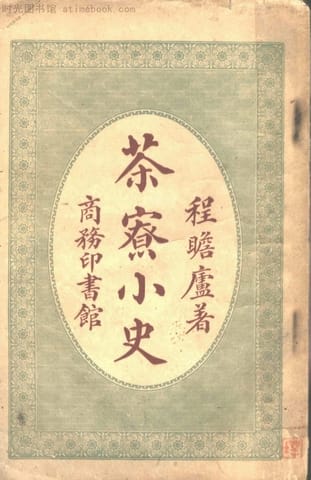 时光图书馆 - atimebook.com
程瞻廬著
茶寮小史
商務印書館